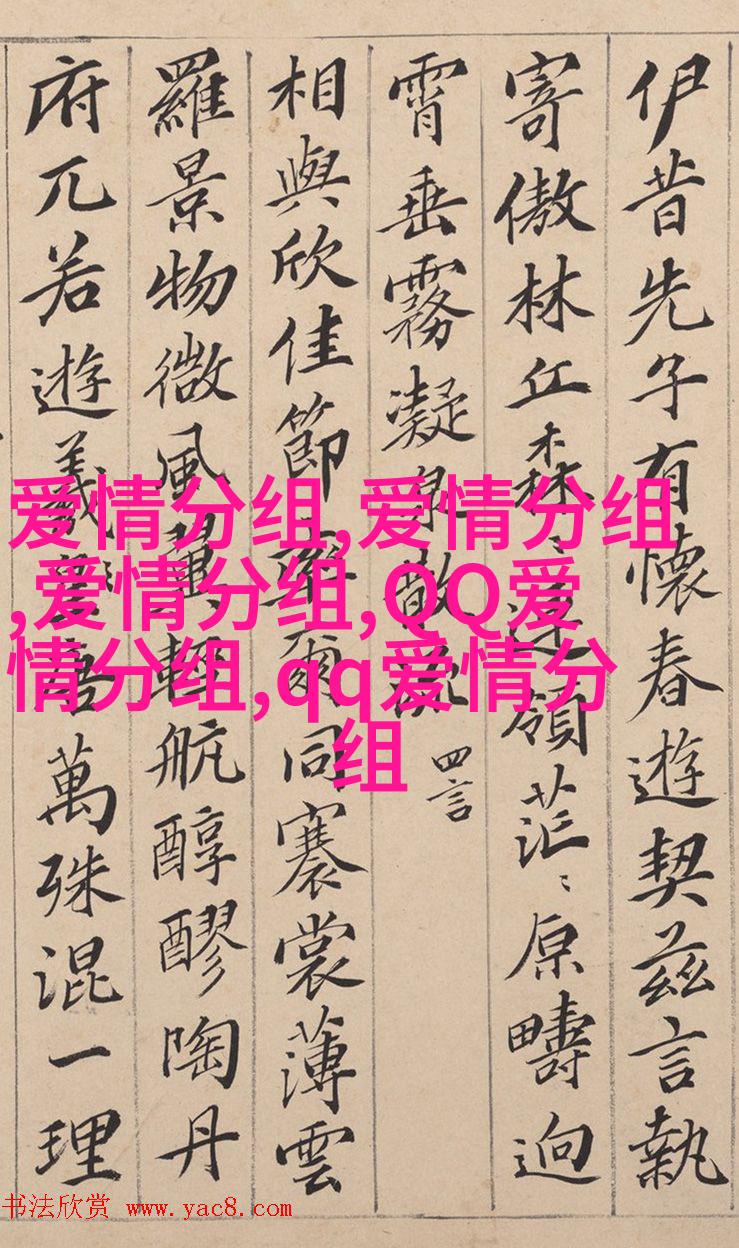 伊昔先子有懷春遊契茲言執
寄傲林丘森〻連領茫〻原疇逈
霄垂霧凝泉散流 四言
相與欣佳節率爾同褰裳薄雲
羅景物微風翼輕航醇醪陶丹
府兀若遊羲萬殊混一理
爱情分组,爱情分组
,爱情分组,QQ爱
情分组,qq爱情分
组
书法欣赏 www.yac8.com